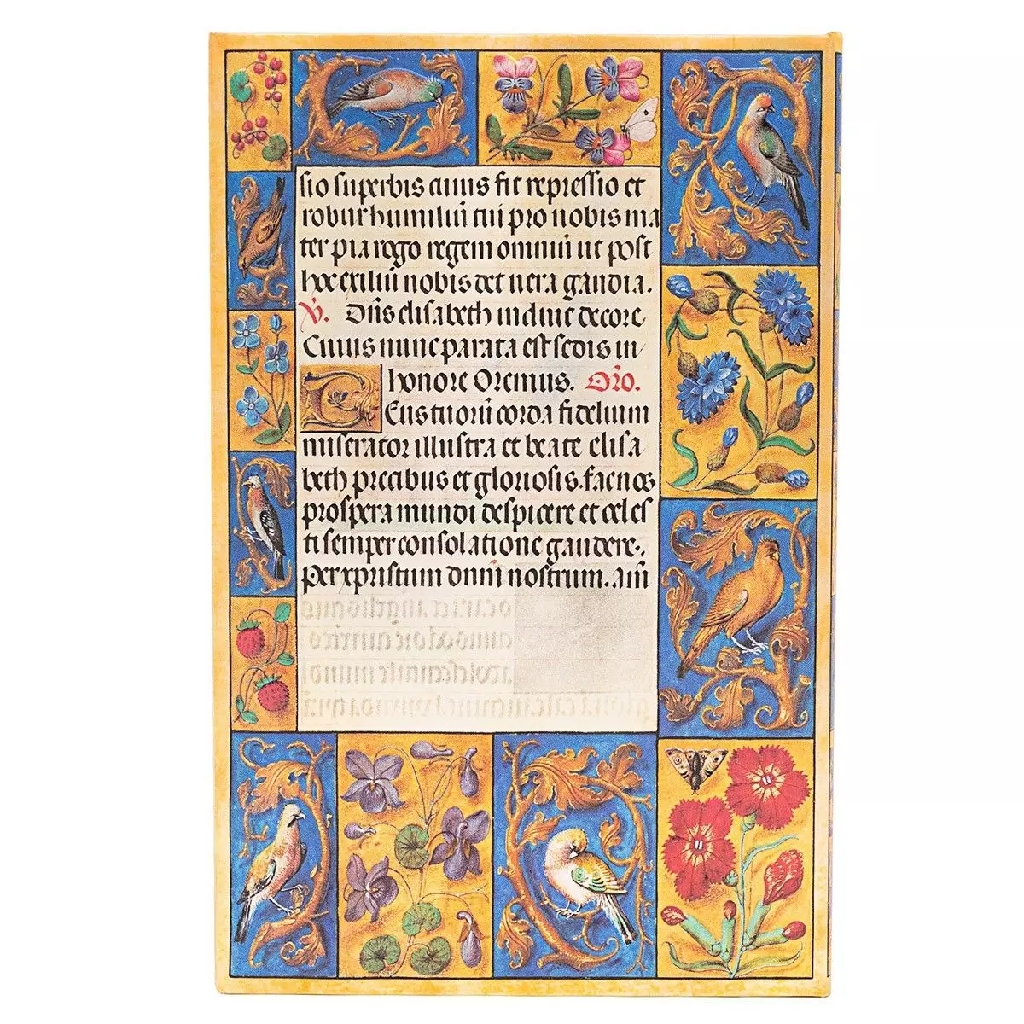 sio superbis cuius fit repressio et
robur humiliū tui pro nobis ma
ter pia rogo regem omniū ut post
hoc exiliū nobis det vera gaudia.
V. Dn̄s elisabeth induit decore
Cuius nunc parata est sedis in
honore Oremus. Or̄o.
Deus tuorū corda fidelium
miserator illustra et beate elisa
beth precibus et gloriosis. fac nos
prospera mundi despicere et celes
ti semper consolatione gaudere.
Per xpristum dnm̄ nostrum. Am̄